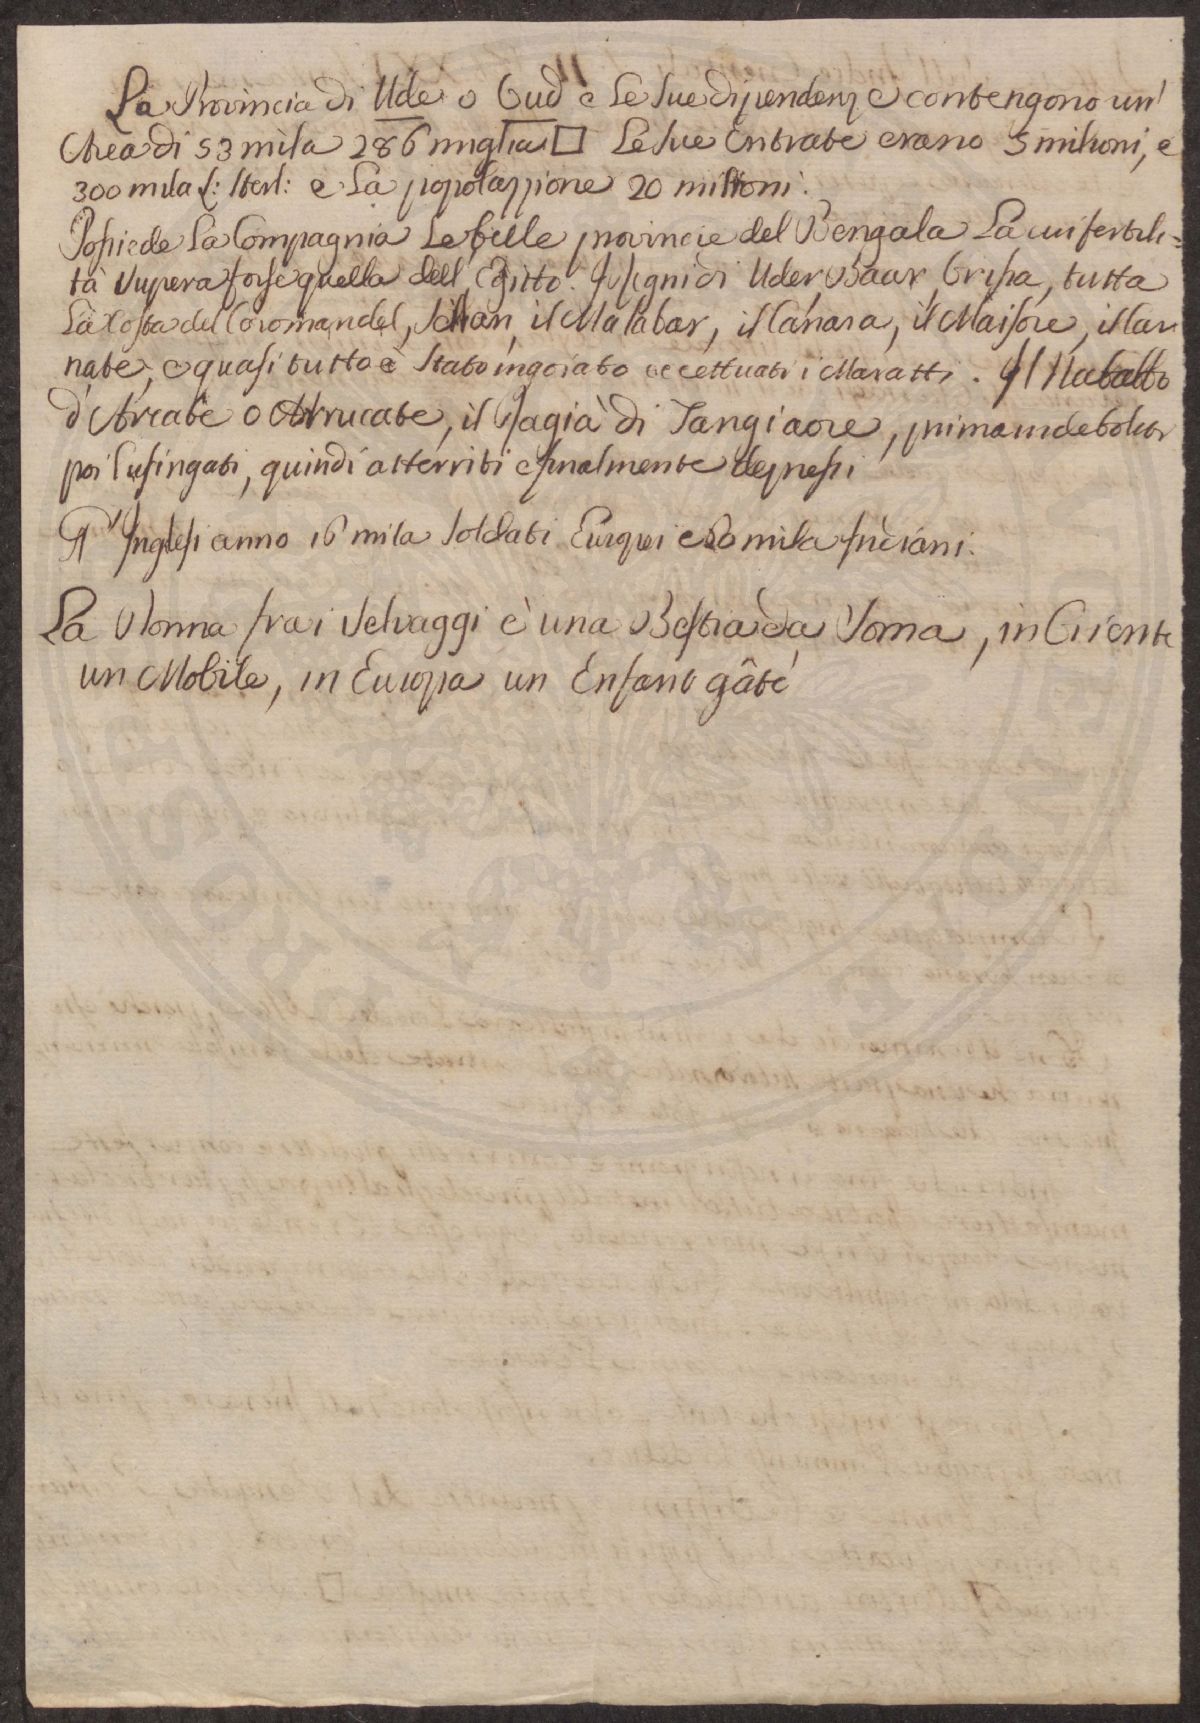 La Provincia di Ude o Oud e le sue dipendenze contengono un'
Area di 53 mila 286 miglia □ Le sue Entrate erano 5 milioni, e
300 mila £: sterl: e la popolazzione 20 millioni.
Possiede La Compagnia Le belle provincie del Bengala La cui fertili=
tà supera forse quella dell'Egitto. I Regni di Uder Baar, Orissa, tutta
La Costa del Coromandel, il Malabar, il Canara, il Maisore, il Car
nate, e quasi tutto è stato ingoiato eccettuati i Maratti. Il Nababbo
d'Arcate o Arrucate, il Ragià di Tangiaore, prima indeboliti
poi lusingati, quindi atterriti e finalmente depressi
Gl'Inglesi anno 16 mila soldati Europei e 80 mila Indiani.
La Donna fra i selvaggi è una Bestia da Soma, in Oriente
un Mobile, in Europa un Enfant gâté